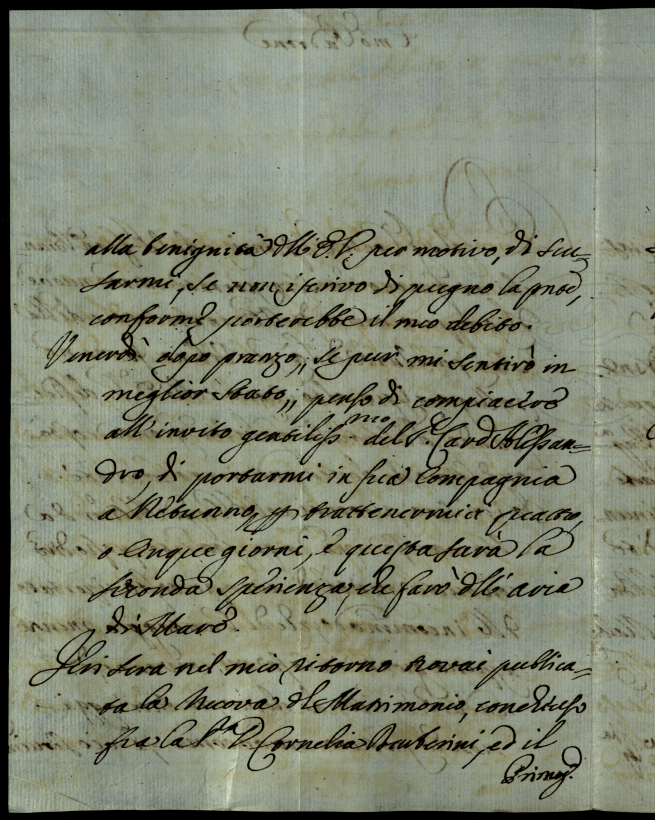 alla benignità dell' E. V. per motivo, di scu-
sarmi, se non iscrivo di pugno la pnte,
conforme porterebbe il mio debito.
Venerdì dopo pranzo, se pur mi sentirò in
meglior stato, penso di compiacere
all' invito gentiliss.mo del S. Card Alessan-
dro, di portarmi in sua Compagnia
a Nettunno, p trattenermici quattro,
o Cinque giorni, e questa sarà la
seconda sperienza, che farò dell' aria
di Mare.
Jeri sera nel mio ritorno trovai publica-
ta la Nuova del Matrimonio, concluso
fra la S.a D. Cornelia Barberini, ed il